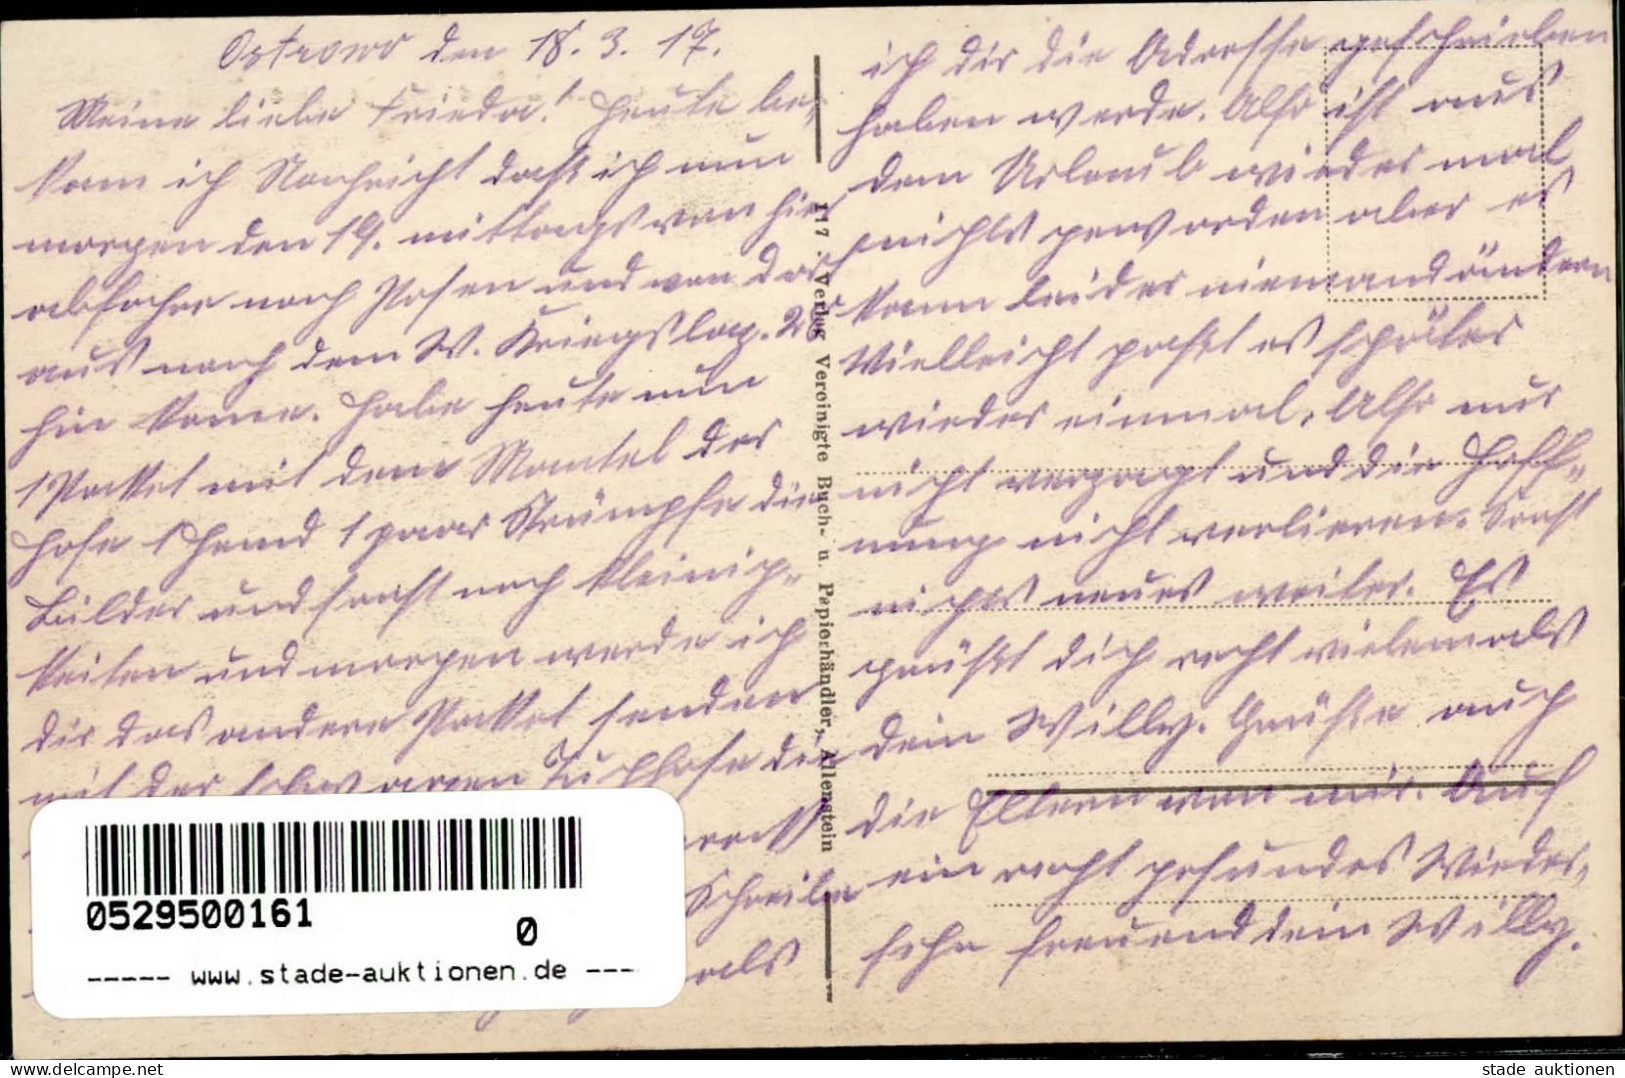 Ostrowo den 18. 3. 17.
Meine liebe Frieda! Heute be-
kam ich Nachricht daß ich nun
morgen den 19. mittags von hier
abfahre nach Posen und von dort
aus nach dem W. Kriegslaz. 28
hin kome. Habe heute nun
1 Packet mit dem Mantel der
Hose 1 Hemd 1 paar Strümpfe die
Bilder und sonst noch kleinig-
keiten und morgen werde ich
dir das andere Packet senden
mit der schwarzen Tuchhose den
rock
Schreibe
als
ich dir die Adresse geschrieben
haben werde. Also ist aus
dem Urlaub wieder mal
nichts geworden aber es
kann leider niemand ändern
Vielleicht paßt es später
wieder einmal. Also nur
nicht verzagt und die Hoff-
nung nicht verlieren. Sonst
nichts neues weiter. Es
grüßt dich recht vielemals
dein Willy. Grüße auch
die Eltern von mir. Auf
ein recht gesundes Wieder-
sehn freuend dein Willy.
117 . Verlag Vereinigte Buch- u. Papierhändler, Allenstein
0529500161
0
----- www.stade-auktionen.de ---
stade auktionen